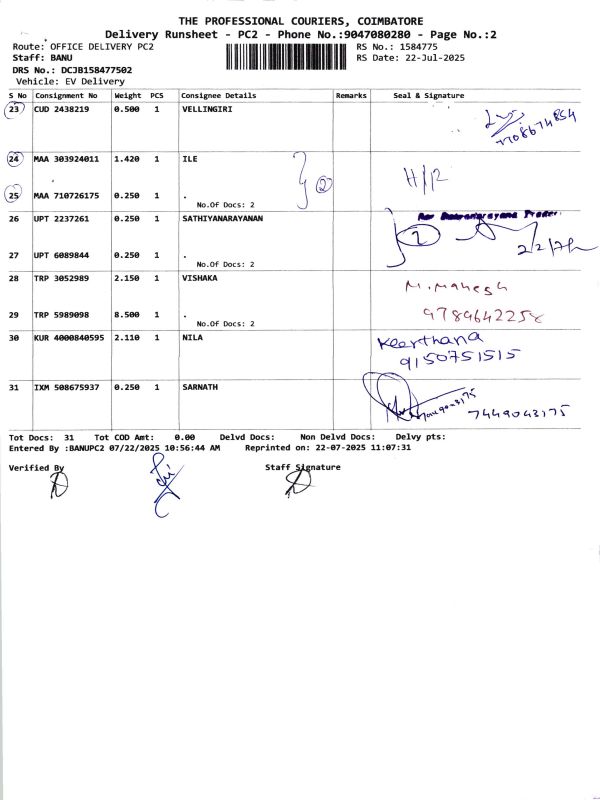 THE PROFESSIONAL COURIERS, COIMBATORE
Delivery Runsheet - PC2 - Phone No.:9047080280 - Page No.:2
Route: OFFICE DELIVERY PC2
RS No.: 1584775
Staff: BANU
RS Date: 22-Jul-2025
DRS No.: DCJB158477502
Vehicle: EV Delivery
S No Consignment No Weight PCS Consignee Details Remarks Seal & Signature
23 CUD 2438219 0.500 1 VELLINGIRI
24 MAA 303924011 1.420 1 ILE
2 H/R
25 MAA 710726175 0.250 1 .
No.Of Docs: 2
26 UPT 2237261 0.250 1 SATHIYANARAYANAN
2
27 UPT 6089844 0.250 1 .
No.Of Docs: 2
28 TRP 3052989 2.150 1 VISHAKA M. Mahesh
29 TRP 5989098 8.500 1 . 9789642258
No.Of Docs: 2
30 KUR 4000840595 2.110 1 NILA Keerthana
9150751515
31 IXM 508675937 0.250 1 SARNATH
7449043175
Tot Docs: 31 Tot COD Amt: 0.00 Delvd Docs: Non Delvd Docs: Delvy pts:
Entered By :BANUPC2 07/22/2025 10:56:44 AM Reprinted on: 22-07-2025 11:07:31
Verified By Staff Signature